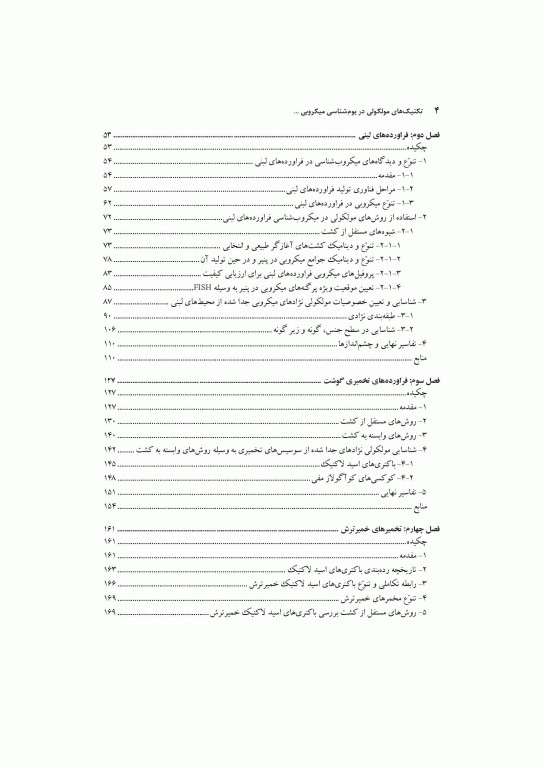 ۴ تکنیک‌های مولکولی در بوم‌شناسی میکروبی ...
فصل دوم: فراورده‌های لبنی ........ ۵۳
چکیده ........ ۵۳
۱- تنوّع و دیدگاه‌های میکروب‌شناسی در فراورده‌های لبنی ........ ۵۴
۱-۱- مقدمه ........ ۵۴
۱-۲- مراحل فناوری تولید فراورده‌های لبنی ........ ۵۷
۱-۳- تنوّع میکروبی در فراورده‌های لبنی ........ ۶۲
۲- استفاده از روش‌های مولکولی در میکروب‌شناسی فراورده‌های لبنی ........ ۷۲
۲-۱- شیوه‌های مستقل از کشت ........ ۷۳
۲-۱-۱- تنوّع و دینامیک کشت‌های آغازگر طبیعی و انتخابی ........ ۷۳
۲-۱-۲- تنوّع و دینامیک جوامع میکروبی در پنیر و در حین تولید آن ........ ۷۸
۲-۱-۳- پروفیل‌های میکروبی فراورده‌های لبنی برای ارزیابی کیفیت ........ ۸۳
۲-۱-۴- تعیین موقعیت ویژه پرگنه‌های میکروبی در پنیر به وسیله FISH ........ ۸۵
۳- شناسایی و تعیین خصوصیات مولکولی نژادهای میکروبی جدا شده از محیط‌های لبنی ........ ۸۷
۳-۱- طبقه‌بندی نژادی ........ ۹۰
۳-۲- شناسایی در سطح جنس، گونه و زیر گونه ........ ۱۰۶
۴- تفاسیر نهایی و چشم‌اندازها ........ ۱۱۰
منابع ........ ۱۱۰
فصل سوم: فراورده‌های تخمیری گوشت ........ ۱۲۷
چکیده ........ ۱۲۷
۱- مقدمه ........ ۱۲۷
۲- روش‌های مستقل از کشت ........ ۱۳۰
۳- روش‌های وابسته به کشت ........ ۱۴۰
۴- شناسایی مولکولی نژادهای جدا شده از سوسیس‌های تخمیری به وسیله روش‌های وابسته به کشت ........ ۱۴۲
۴-۱- باکتری‌های اسید لاکتیک ........ ۱۴۵
۴-۲- کوکسی‌های کوآگولاز منفی ........ ۱۴۸
۵- تفاسیر نهایی ........ ۱۵۱
منابع ........ ۱۵۴
فصل چهارم: تخمیرهای خمیرترش ........ ۱۶۱
چکیده ........ ۱۶۱
۱- مقدمه ........ ۱۶۱
۲- تاریخچه رده‌بندی باکتری‌های اسید لاکتیک ........ ۱۶۳
۳- رابطه تکاملی و تنوّع باکتری‌های اسید لاکتیک خمیرترش ........ ۱۶۶
۴- تنوّع مخمرهای خمیرترش ........ ۱۶۹
۵- روش‌های مستقل از کشت بررسی باکتری‌های اسید لاکتیک خمیرترش ........ ۱۶۹